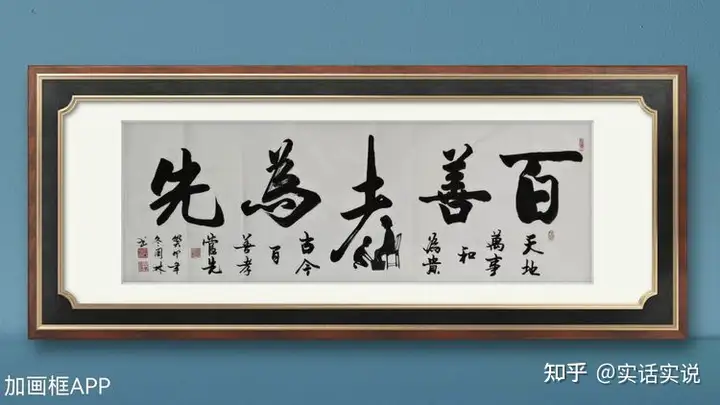 百善孝為先
天地
萬事
和
為貴
古今
百
善孝
當先
癸卯年
冬周林
书
加画框APP
知乎 @实话实说